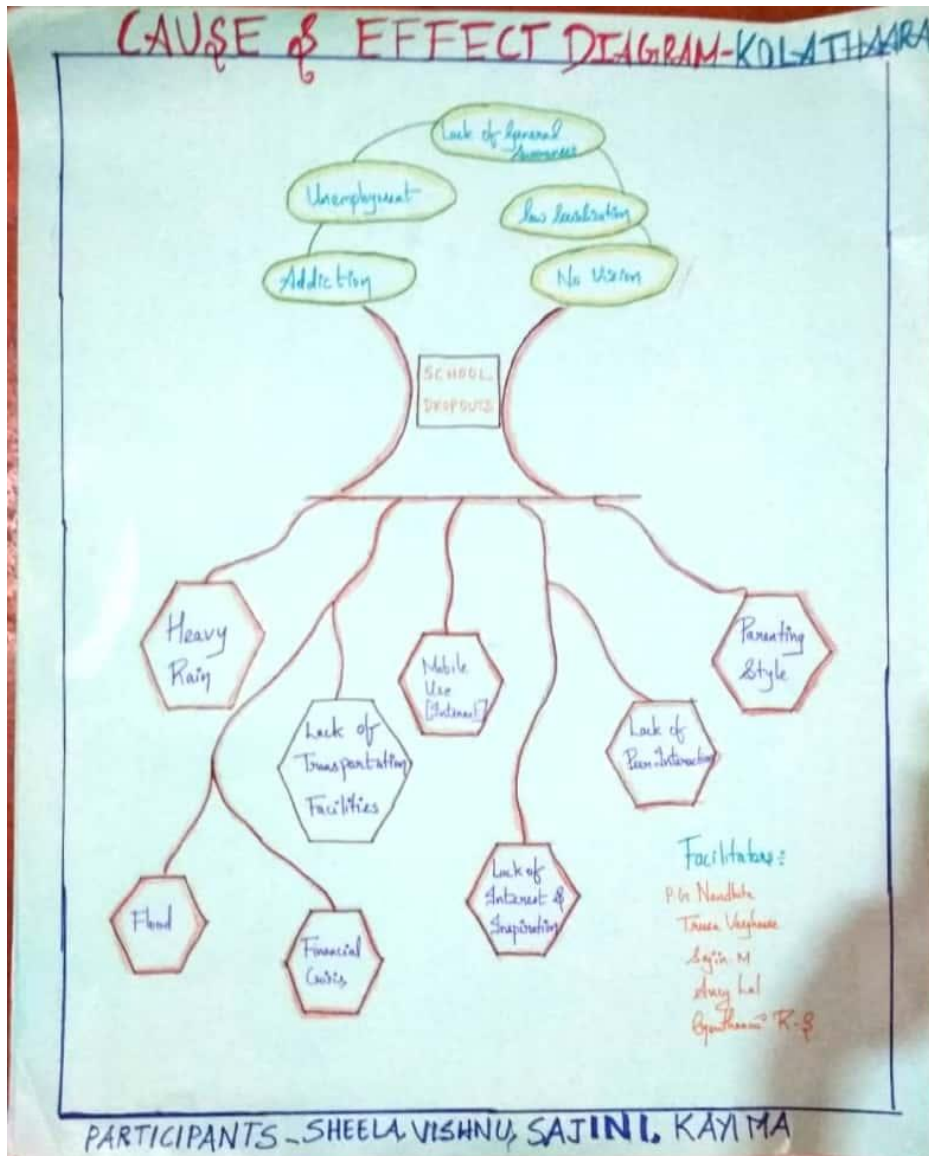 CAUSE & EFFECT DIAGRAM-KOLATHAARA
Lack of General
Awareness
Unemployment
Addiction
No Vision
SCHOOL
DROPOUTS
Heavy
Rain
Lack of
Transportation
Facilities
Mobile
Use
[Internet]
Lack of
Peer-Interaction
Parenting
Style
Flood
Financial
Crisis
Lack of
Interest &
Inspiration
Facilitators:
P.G
Varghese
Sajin M
Lal
R.S
PARTICIPANTS - SHEELA, VISHNU, SAJINI, KAYIMA